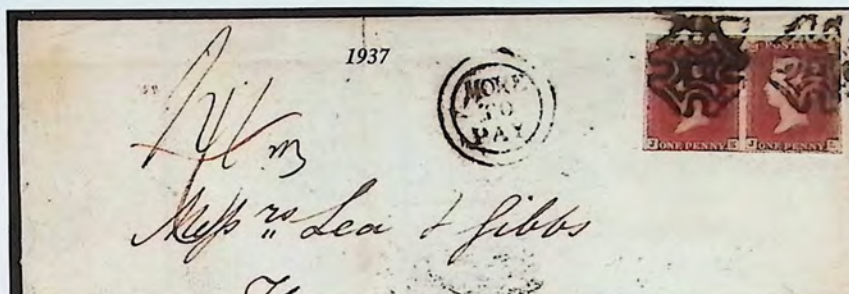 1937
MORE
TO
PAY
POSTA
J ONE PENNY J ONE PENNY
Messrs Lea & Gibbs